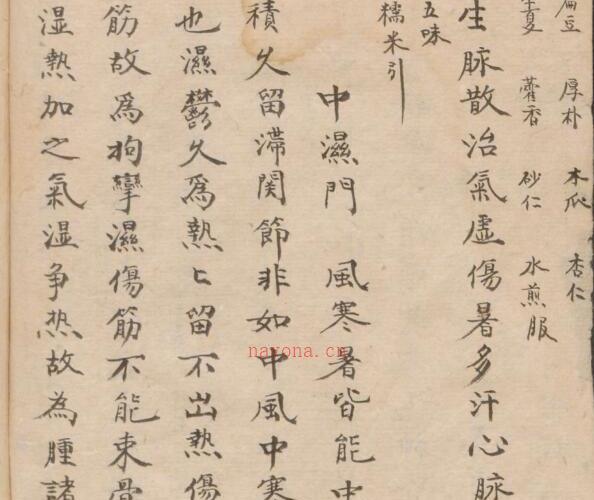 扁豆 厚朴 木瓜 杏仁
夏 藿香 砂仁 水煎服
生脉散治氣虛傷暑多汗心脉
五味
糯米引
中濕門 風寒暑皆能中
積久留滯関節非如中風中寒
也濕鬱久爲熱〻留不出熱傷
筋故爲拘攣濕傷筋不能束骨
湿熱加之氣湿争热故為腫諸
nayona.cn